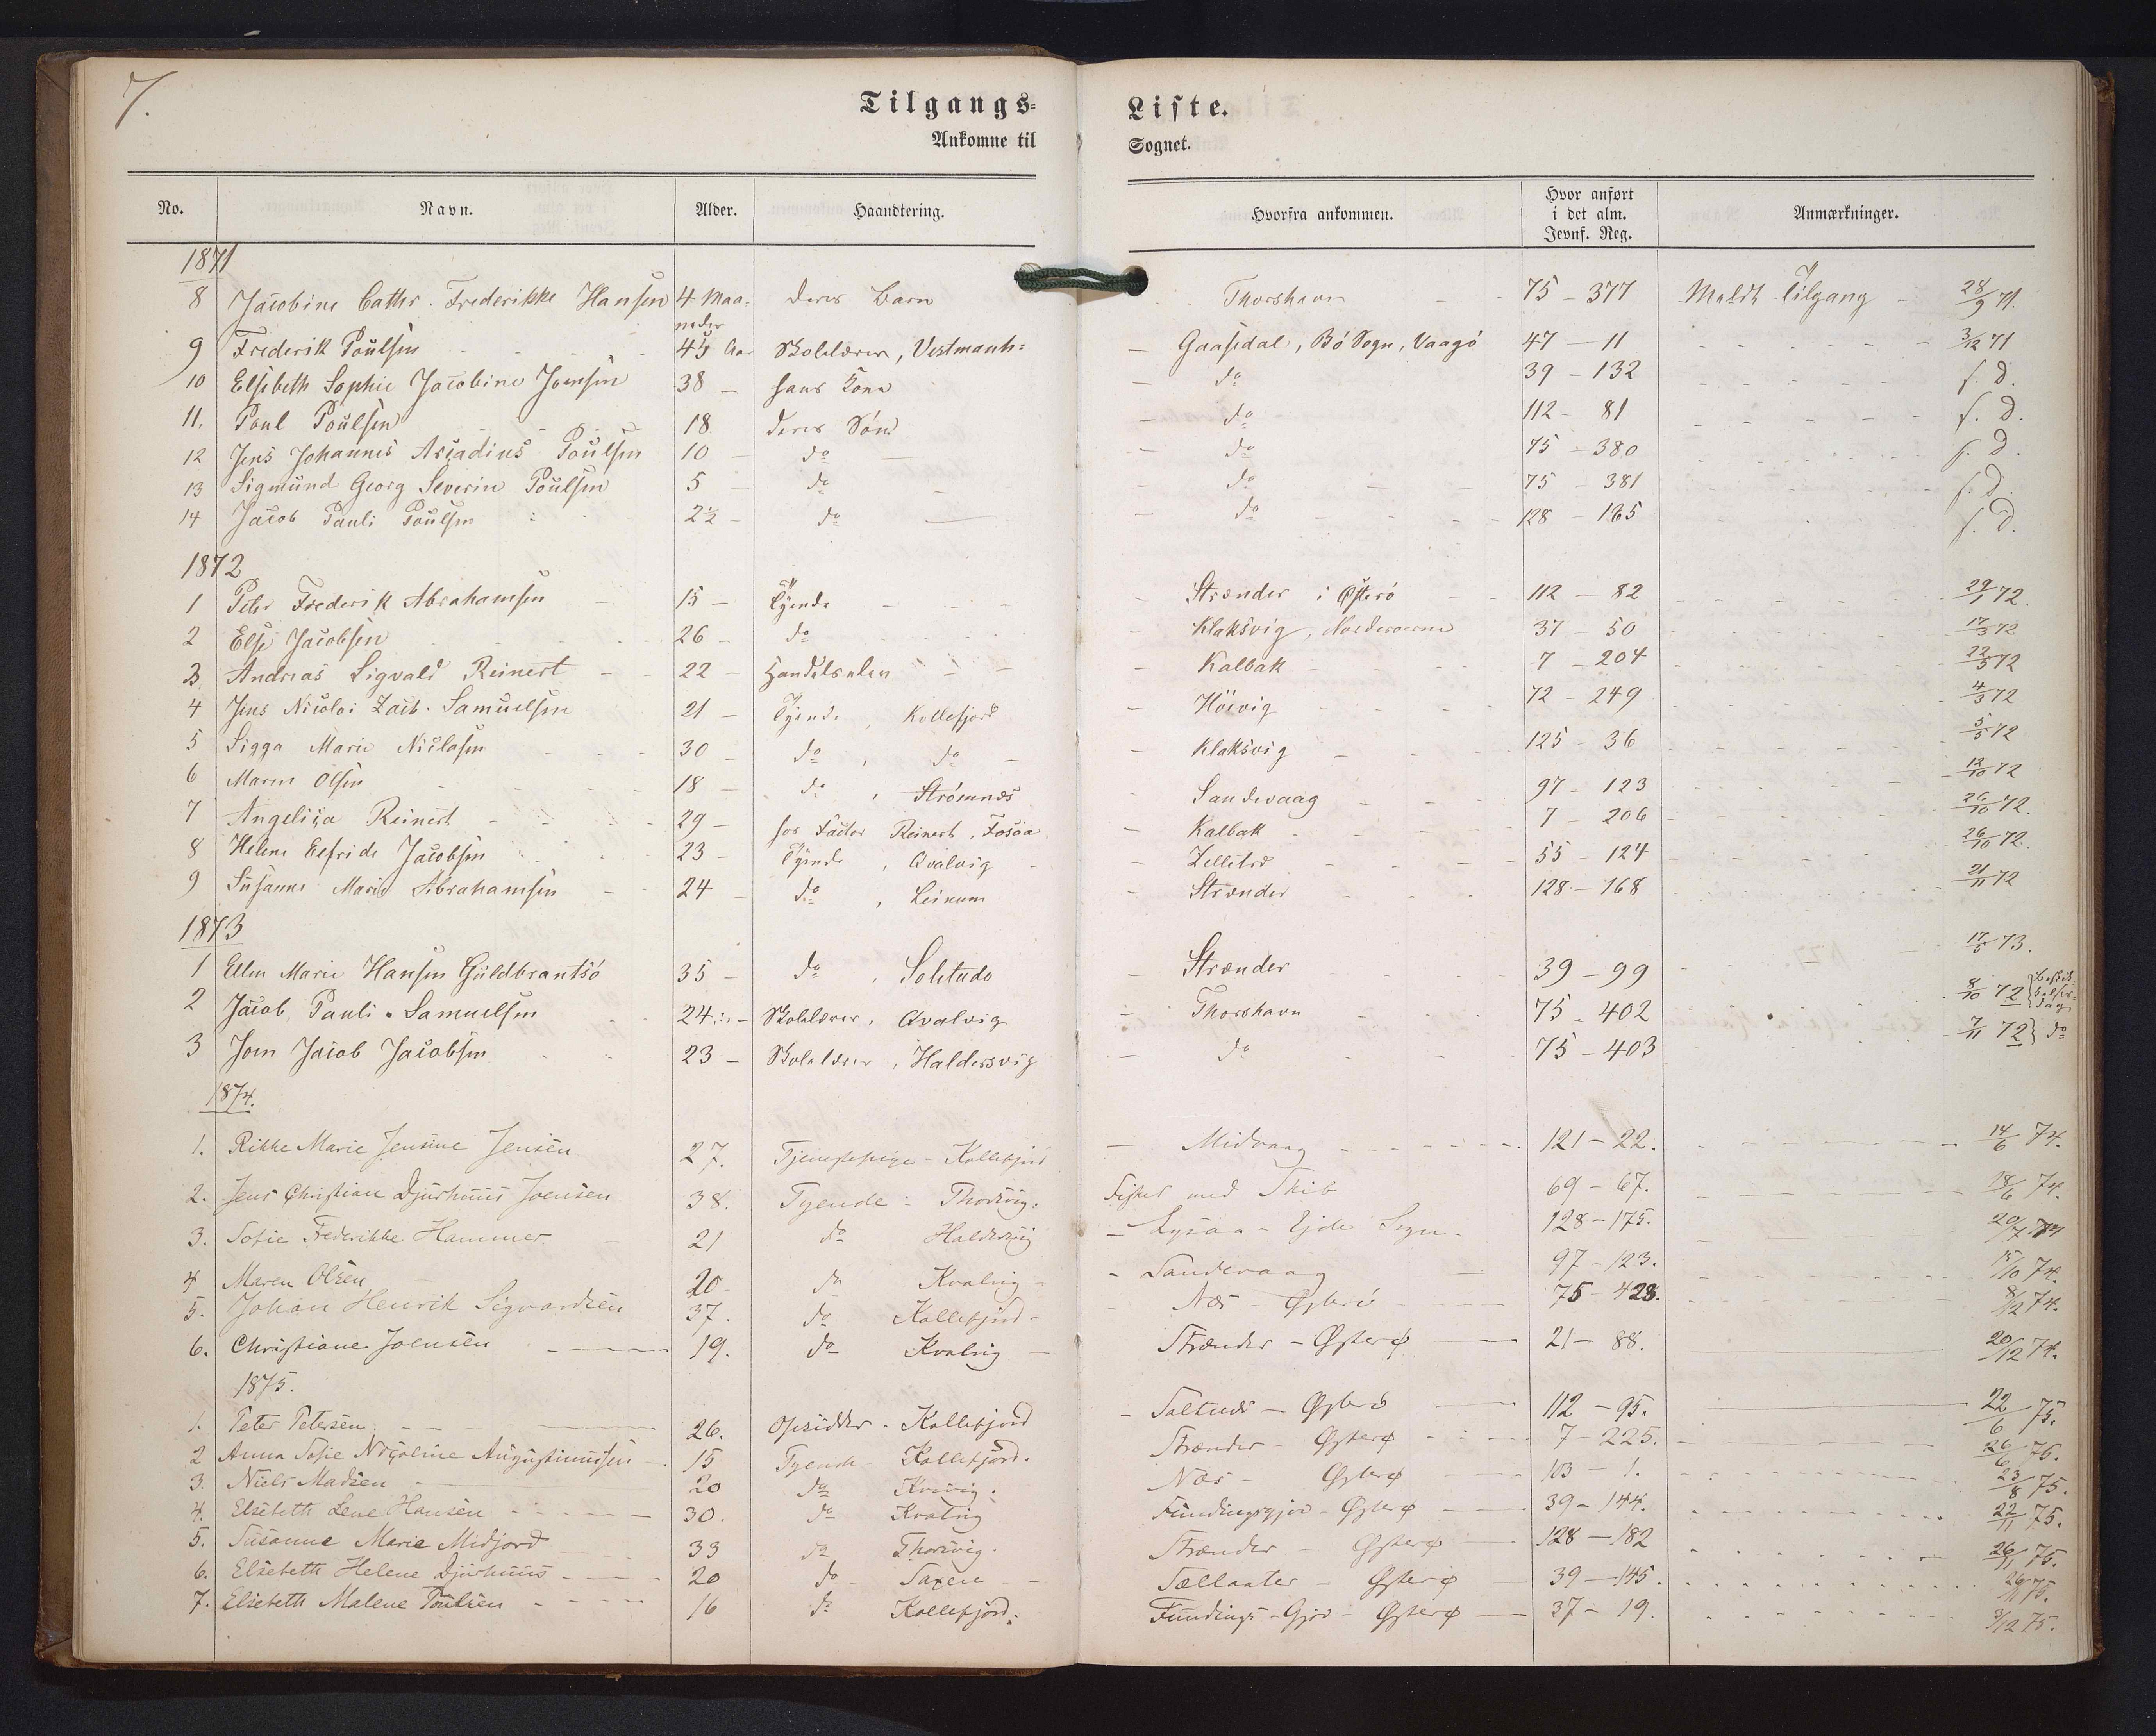 7.
Tilgangs-Liste.
Ankomne til Sognet.
No. Navn. Alder. Haandtering. Hvorfra ankommen. Hvor anført i det alm. Jevnf. Reg. Anmærkninger.
1871
8 Jacobine Cathr. Frederikke Hansen 4 Maaneder deres Barn Thorshavn 75 - 377 Meldt Tilgang 28/9 71.
9 Frederik Poulsen 45 Aar Skolelærer, Vestmanh: Gaasedal, Bø Sogn, Vaagø 47 - 11 3/12 71
10 Elsebeth Sophie Jacobine Joensen 38 - hans Kone do 39 - 132 s. D.
11. Poul Poulsen 18 deres Søn do 112 - 81 s. D.
12 Jens Johannes Arcadius Poulsen 10 - do do 75 - 380 s. D.
13 Sigmund Georg Severin Poulsen 5 - do do 75 - 381 s. D.
14 Jacob Pauli Poulsen 2½ - do do 128 - 165 s. D.
1872
1 Peter Frederik Abrahamsen 15 - Tyende Strænder i Østerø 112 - 82 29/1 72.
2 Else Jacobsen 26 - do Klaksvig, Norderøerne 37 - 50 17/3 72
3 Andreas Sigvald Reinert 22 - Handelselev Kalbak 7 - 204 22/3 72
4 Jens Nicolai Zach. Samuelsen 21 - Tyende, Kollefjord Hòivig 72 - 249 4/3 72
5 Sigga Marie Niclasen 30 - do, do Klaksvig 125 - 36 5/5 72
6 Maren Olsen 18 - do, Strømnæs Sandevaag 97 - 123 12/10 72
7 Angelica Reinert 29 - hos Factor Reinert, Fosaa Kalbak 7 - 206 26/10 72.
8 Helene Elfride Jacobsen 23 - Tyende, Qvalvig Zelletræ 55 - 124 26/10 72.
9 Susanne Marie Abrahamsen 24 do, Leinum Strænder 128 - 168 21/11 72
1873
1 Ellen Marie Hansen Guldbrantsø 35 - do, Solitude Strænder 39 - 99 17/5 73.
2 Jacob Pauli Samuelsen 24 - Skolelærer, Qvalvig Thorshavn 75 - 402 8/10 72
3 Joen Jacob Jacobsen 23 - Skolelærer, Haldersvig do 75 - 403 7/11 72 do
1874.
1. Rikke Marie Jensine Jensen 27. Tjenestepige - Kollefjord Midvaag 121 - 22. 14/6 74.
2. Jens Christian Djurhuus Joensen 38. Tyende: Thorsvig. Fisker med Skib 69 - 67. 18/6 74.
3. Sofie Frederikke Hammer 21 do Haldersvig Eysaa - Ejde Sogn. 128 - 175. 20/7 74
4 Maren Olsen 20 do Kvalvig - Sandevaag 97 - 123. 15/10 74.
5. Johan Henrik Sigvardsen 37. do Kollefjord - Næs - Østerø 75 - 428. 8/12 74.
6. Christiane Joensen 19. do Kvalvig - Strænder - Østerø 21 - 88. 20/12 74.
1875.
1. Peter Petersen. 26. Opsidder - Kollefjord Saltnæs - Østerø 112 - 95. 22/6 75.
2 Anna Sofie Nicoline Augustinussen 15 Tyende Kollefjord. Strænder - Østerø 7 - 225. 26/6 75.
3. Niels Madsen 20 do Kvivig. Næs - Østerø 103 - 1. 23/8 75.
4. Elsebeth Lene Hansen 30. do Kvalvig Fundingsgjov - Østerø 39 - 144. 22/11 75.
5. Susanne Marie Midjord 33 do Thorsvig. Strænder - Østerø 128 - 182 26/11 75.
6. Elsebeth Helene Djurhuus 20 do Saxen Sellaater - Østerø 39 - 145. 26/11 75.
7. Elsebeth Malene Poulsen 16 do Kollefjord. Fundings-Gjov - Østerø 37 - 19. 3/12 75.